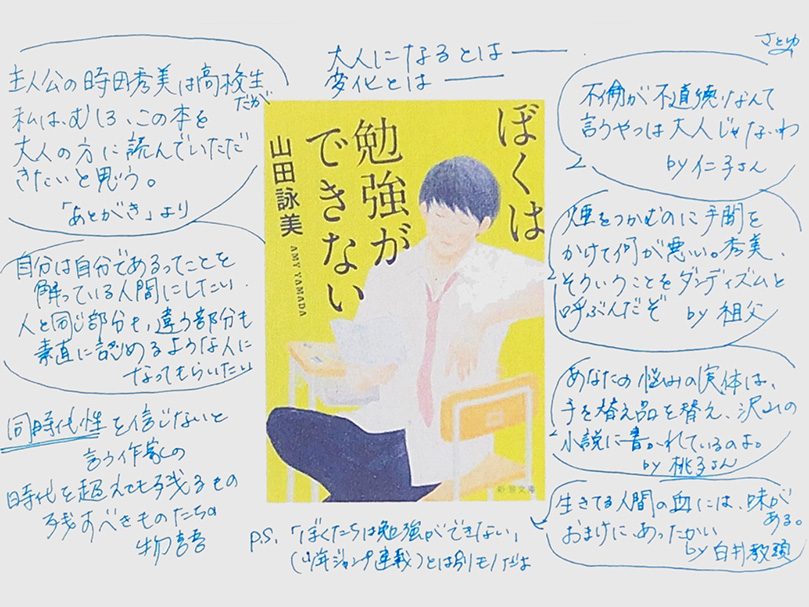 大人になるとは――
変化とは――
さとゆ
主人公の時田秀美は高校生
だが
私は、むしろ、この本を
大人の方に読んでいただ
きたいと思う。
「あとがき」より
自分は自分であるってことを
解っている人間にしたい.
人と同じ部分も,違う部分も
素直に認めるような人に
なってもらいたい
同時代性を信じないと
言う作家の
時代を超えても残るもの
残すべきものたちの
物語
ぼくは
勉強が
できない
山田詠美
AMY YAMADA
新潮文庫
不倫が不道徳なんて
言うやつは大人じゃないわ
by 仁子さん
煙をつかむのに手間を
かけて何が悪い。秀美、
そういうことをダンディズムと
呼ぶんだぞ by 祖父
あなたの悩みの実体は、
手を替え品を替え、沢山の
小説に書かれているのよ。
by 桃子さん
生きてる人間の血には、味が
ある。
おまけに、あったかい
by 白井教頭
P.S. 「ぼくたちは勉強ができない」
(少年ジャンプ連載)とは別モノだよ